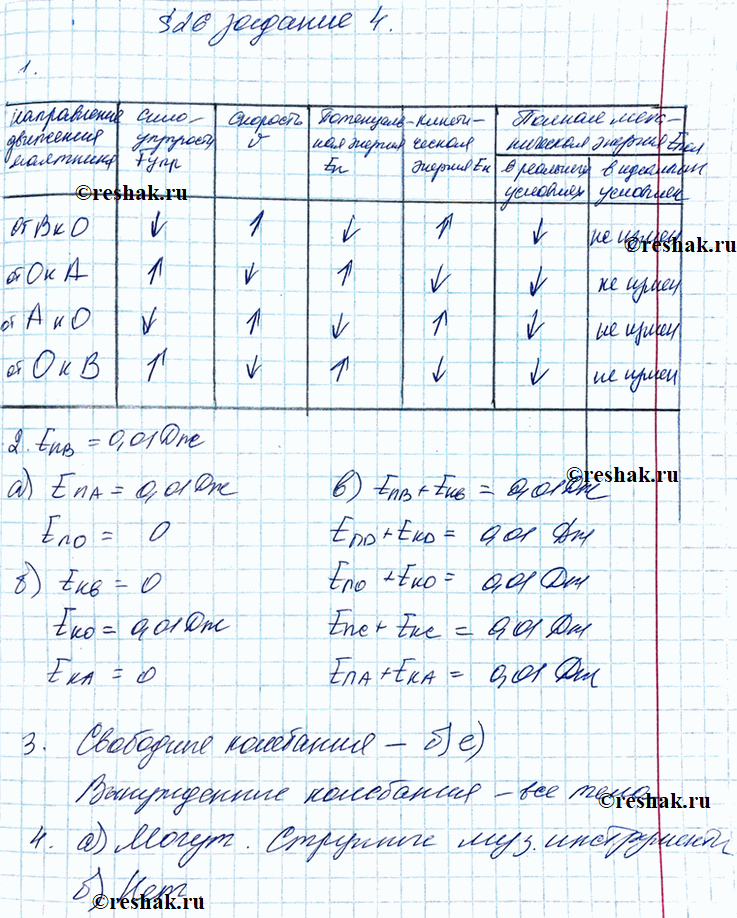 §26 задание 4.
1.
направление движения маятника | сила упругости Fупр | скорость v | Потенциальная энергия Eп | кинетическая энергия Eк | Полная механическая энергия Eпол
в реальных условиях | в идеальн условиях
©reshak.ru
от В к О ↓ ↑ ↓ ↑ ↓ не измен
©reshak.ru
от О к А ↑ ↓ ↑ ↓ ↓ не измен
от А к О ↓ ↑ ↓ ↑ ↓ не измен
от О к В ↑ ↓ ↑ ↓ ↓ не измен
2. EпВ = 0,01 Дж
©reshak.ru
а) EпА = 0,01 Дж в) EпВ + EкВ = 0,01 Дж
EпО = 0 EпD + EкD = 0,01 Дж
б) EкВ = 0 EпО + EкО = 0,01 Дж
EкО = 0,01 Дж EпС + EкС = 0,01 Дж
EкА = 0 EпА + EкА = 0,01 Дж
3. Свободные колебания – б) е)
Вынужденные колебания – все тела
©reshak.ru
4. а) Могут. Струнные муз. инструменты
б) Нет
©reshak.ru